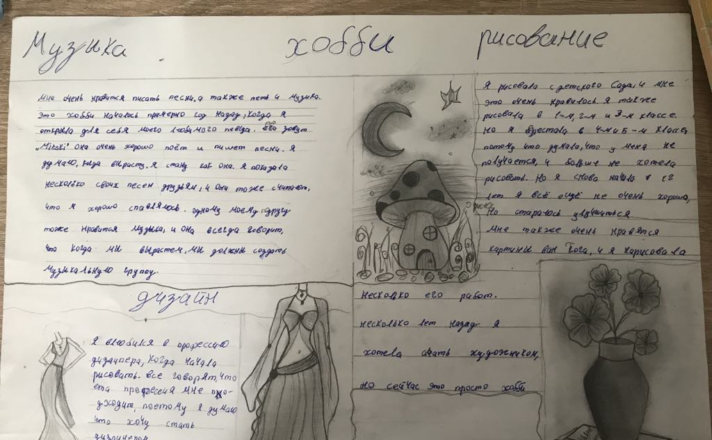 Музыка
хобби
рисование
Мне очень нравится писать песни, а также петь и музыка.
Это хобби началось примерно год назад, когда я
открыла для себя моего любимого певца, его зовут
"Mitski" она очень хорошо поёт и пишет песни. Я
думаю, когда вырасту, я стану как она. Я показала
несколько своих песен друзьям, и они тоже считают,
что я хорошо справляюсь. одному моему другу
тоже нравится музыка, и она всегда говорит,
что когда мы вырастем, мы должны создать
музыкальную группу.
Я рисовала с детского сада, и мне
это очень нравилось я также
рисовала в 1-м, 2-м и 3-м классе
Но я перестала в 4-м и 5-м классе
потому что думала, что у меня не
получается, и больше не хотела
рисовать. Но я снова начала в
лет я всё ещё не очень хороша,
Но стараюсь улучшиться
Мне также очень нравятся
картины Ван Гога, и я нарисовала
несколько его работ.
несколько лет назад я
хотела стать художником,
но сейчас это просто хобби
дизайн
Я влюбился в профессию
дизайнера, когда начала
рисовать. все говорят, что
эта профессия мне по-
дходит, поэтому я думаю
что хочу стать
дизайнером